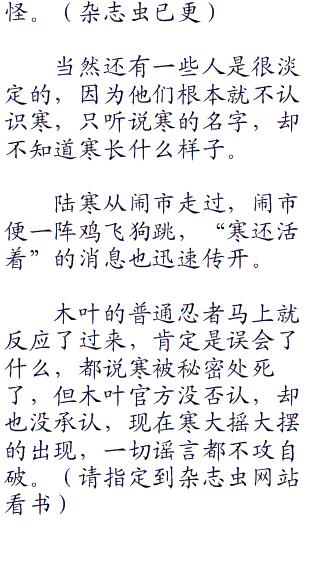 怪。（杂志虫已更）
当然还有一些人是很淡
定的，因为他们根本就不认
识寒，只听说寒的名字，却
不知道寒长什么样子。
陆寒从闹市走过，闹市
便一阵鸡飞狗跳，“寒还活
着”的消息也迅速传开。
木叶的普通忍者马上就
反应了过来，肯定是误会了
什么，都说寒被秘密处死
了，但木叶官方没否认，却
也没承认，现在寒大摇大摆
的出现，一切谣言都不攻自
破。（请指定到杂志虫网站
看书）